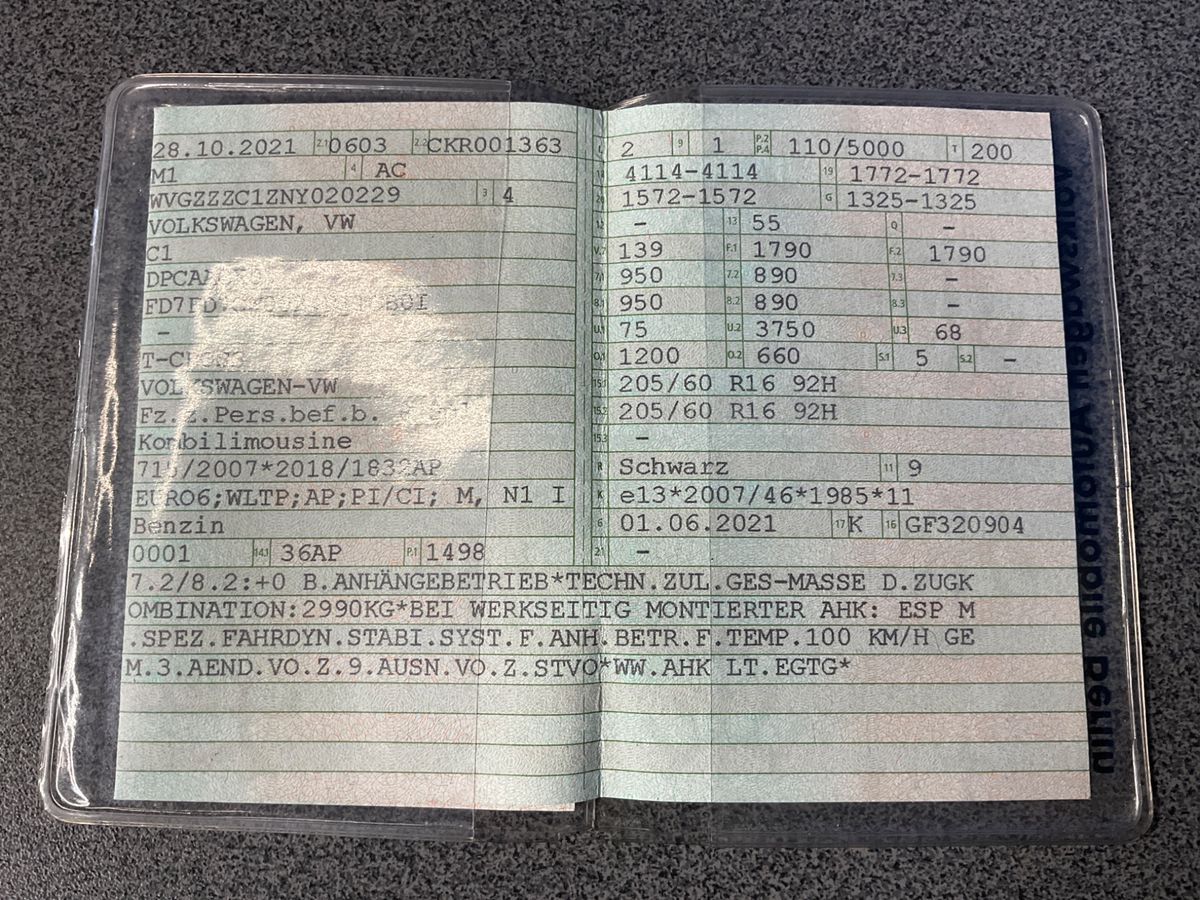 28.10.2021 2.1 0603 2.2 CKR001363
M1 4 AC
WVGZZZC1ZNY020229 3 4
VOLKSWAGEN, VW
C1
–
VOLKSWAGEN-VW
Fz.z.Pers.bef.b.
Kombilimousine
715/2007*2018/1832AP
EURO6;WLTP;AP;PI/CI; M, N1 I
Benzin
0001 14.1 36AP P.1 1498
2 9 1 P.2 P.4 110/5000 T 200
4114-4114 19 1772-1772
1572-1572 G 1325-1325
– 13 55 Q –
139 F.1 1790 F.2 1790
7.1 950 7.2 890 7.3 –
8.1 950 8.2 890 8.3 –
U.1 75 U.2 3750 U.3 68
O.1 1200 O.2 660 S.1 5 S.2 –
15.1 205/60 R16 92H
15.2 205/60 R16 92H
15.3 –
R Schwarz 11 9
K e13*2007/46*1985*11
6 01.06.2021 17 K 16 GF320904
21 –
7.2/8.2:+0 B.ANHÄNGEBETRIEB*TECHN.ZUL.GES-MASSE D.ZUGK
OMBINATION:2990KG*BEI WERKSEITIG MONTIERTER AHK: ESP M
.SPEZ.FAHRDYN.STABI.SYST.F.ANH.BETR.F.TEMP.100 KM/H GE
M.3.AEND.VO.Z.9.AUSN.VO.Z.STVO*WW.AHK LT.EGTG*
Volkswagen Automobile Berlin